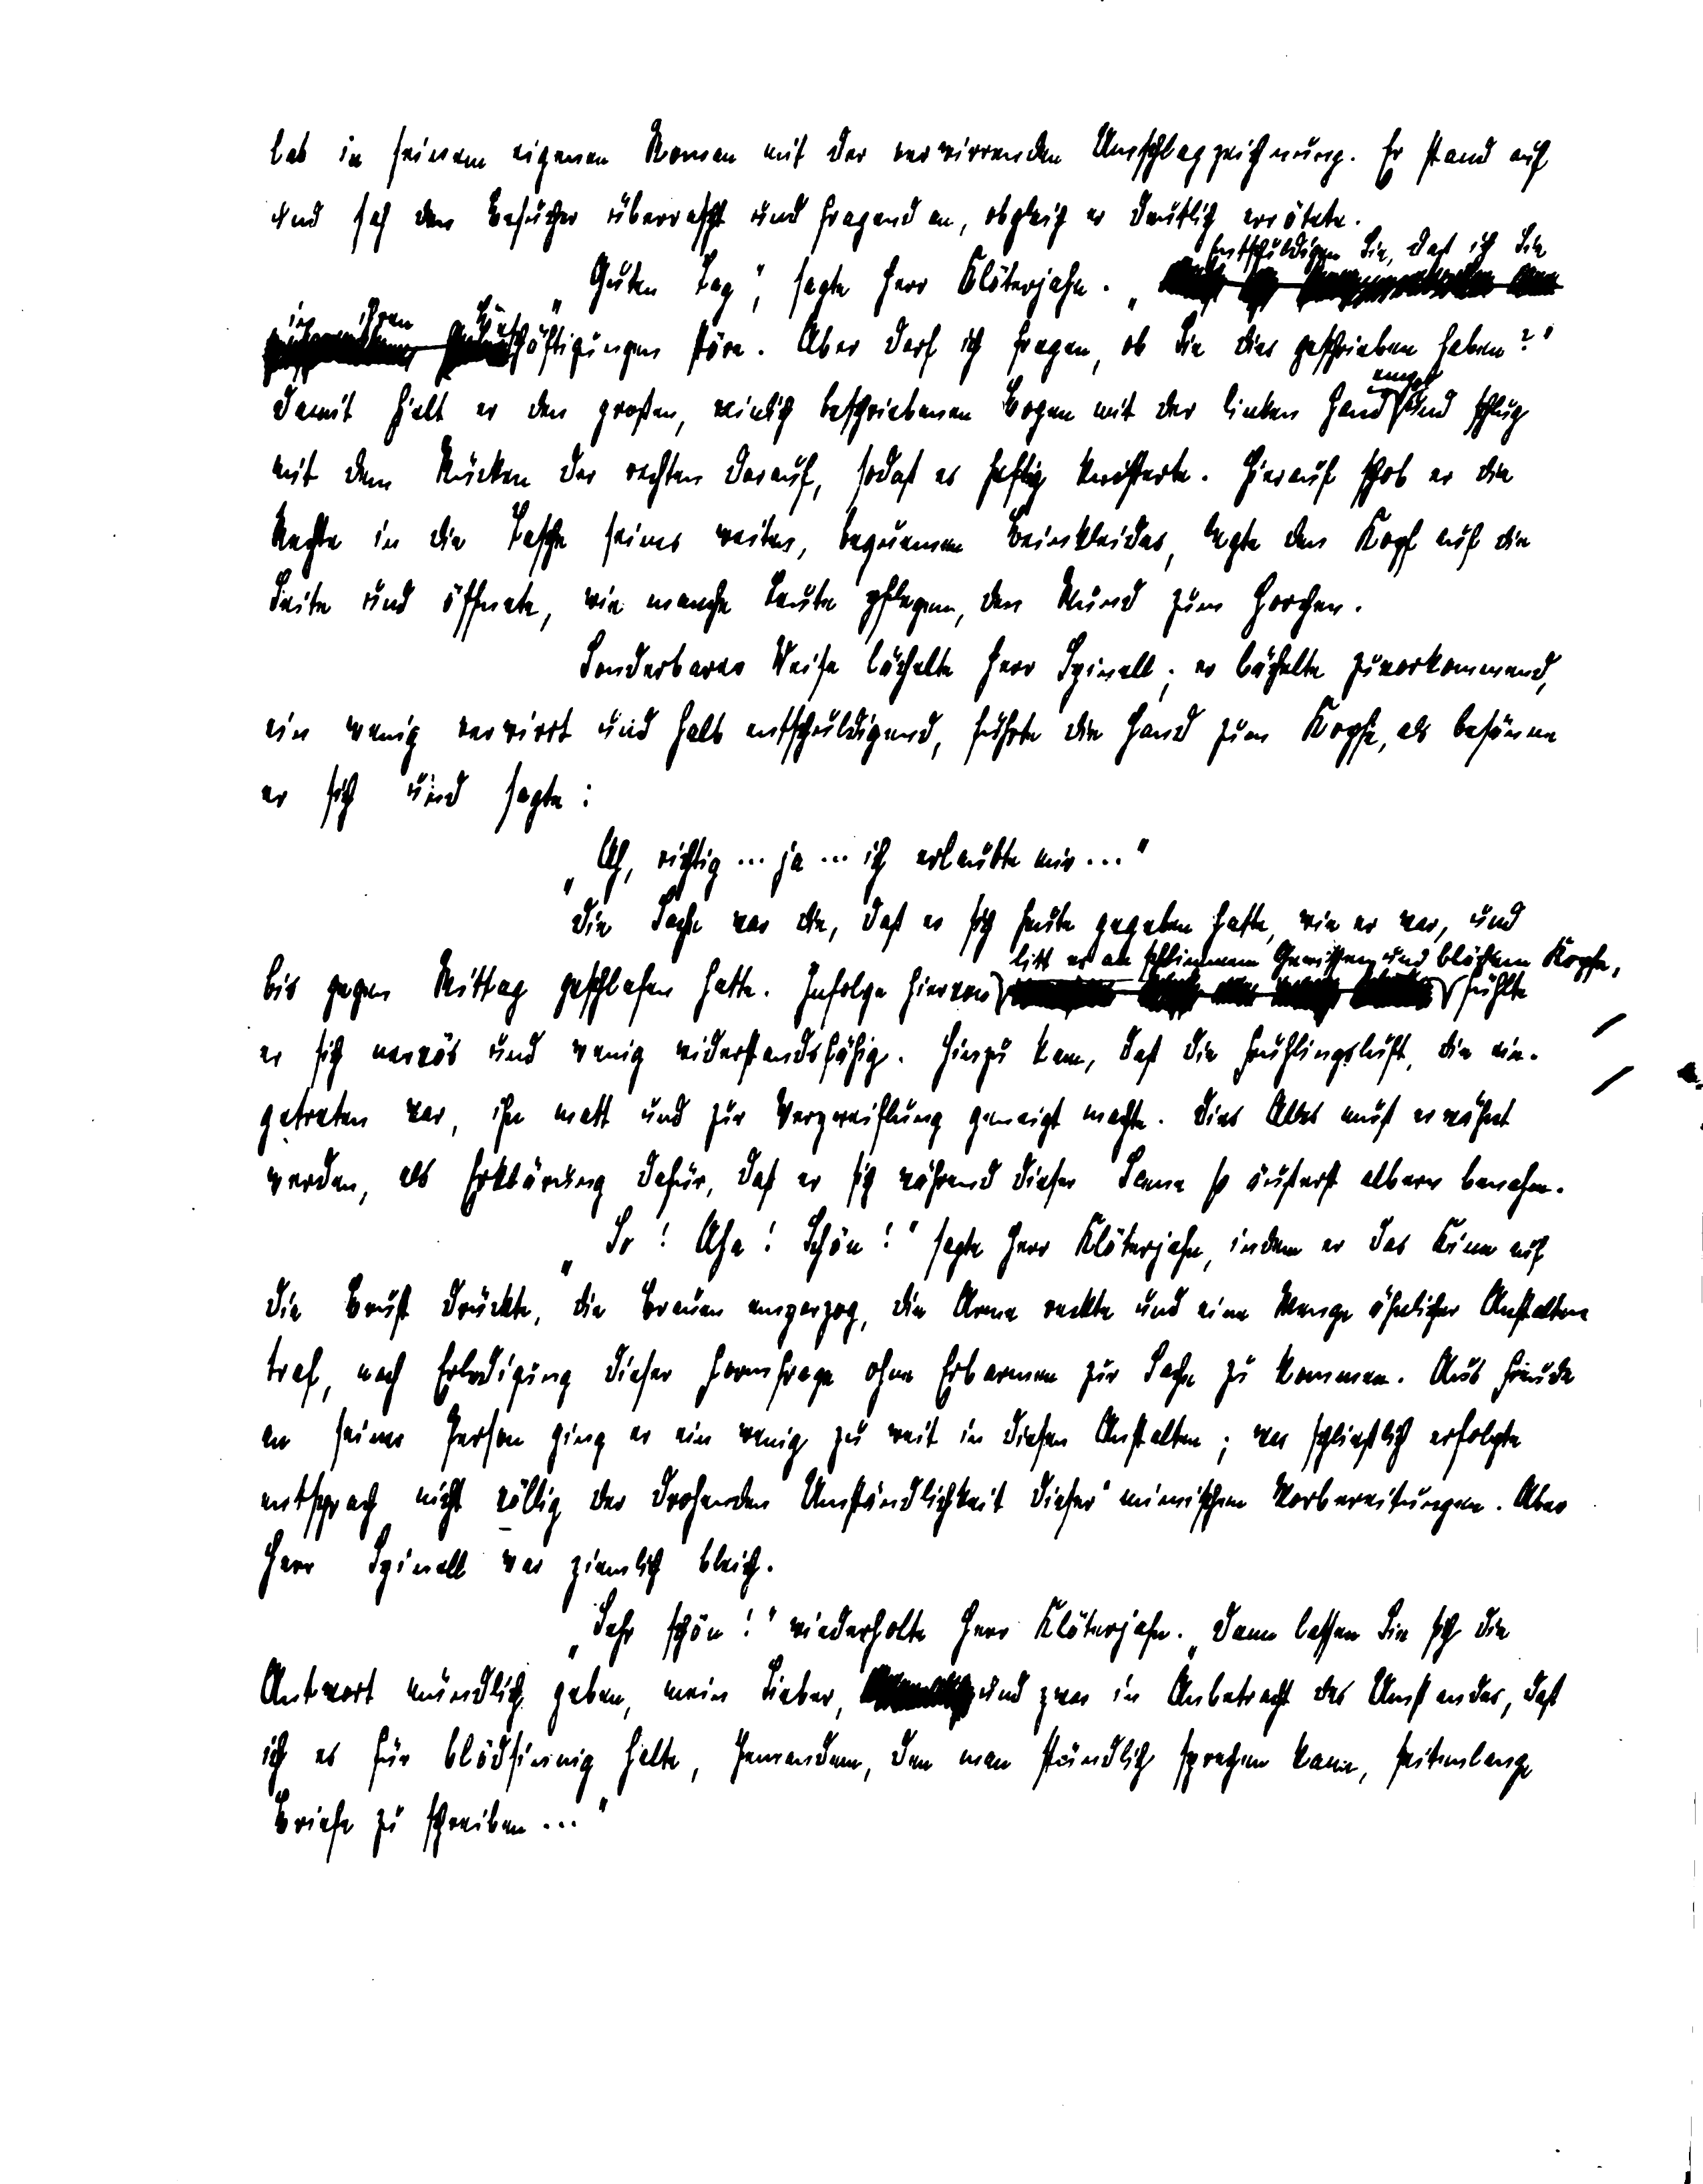 las in seinem eigenen Roman mit der verwirrenden Umschlagzeichnung. Er stand auf
und sah den Besucher überrascht und fragend an, obgleich er deutlich errötete.
„Guten Tag“, sagte Herr Klöterjahn. „Entschuldigen Sie, daß ich Sie
in ihren Beschäftigungen störe. Aber darf ich fragen, ob Sie dies geschrieben haben?“
Damit hielt er den großen, reinlich beschriebenen Bogen mit der linken Hand empor und schlug
mit dem Rücken der rechten darauf, sodaß es heftig knisterte. Hierauf schob er die
Rechte in die Tasche seines weiten, bequemen Beinkleides, legte den Kopf auf die
Seite und öffnete, wie manche Leute pflegen, den Mund zum Horchen.
Sonderbarer Weise lächelte Herr Spinell; er lächelte zuvorkommend,
ein wenig verwirrt und halb entschuldigend, führte die Hand zum Kopfe, als besänne
er sich und sagte:
„Ah, richtig ... ja ... ich erlaubte mir ...“
Die Sache war die, daß er sich heute gegeben hatte, wie er war, und
bis gegen Mittag geschlafen hatte. Infolge hiervon litt er an schlimmem Gewissen und blödem Kopfe, fühlte
er sich nervös und wenig widerstandsfähig. Hinzu kam, daß die Frühlingsluft, die ein-
getreten war, ihn matt und zur Verzweiflung geneigt machte. Dies Alles muß erwähnt
werden, als Erklärung dafür, daß er sich während dieser Scene so äußerst albern benahm.
„So! Aha! Schön!“ sagte Herr Klöterjahn, indem er das Kinn auf
die Brust drückte, die Brauen emporzog, die Arme reckte und eine Menge ähnlicher Anstalten
traf, nach Erledigung dieser Formfrage ohne Erbarmen zur Sache zu kommen. Aus Freude
an seiner Person ging er ein wenig zu weit in diesen Anstalten; was schließlich erfolgte
entsprach nicht völlig der drohenden Umständlichkeit dieser mimischen Vorbereitungen. Aber
Herr Spinell war ziemlich bleich.
„Sehr schön!“ wiederholte Herr Klöterjahn. „Dann lassen Sie sich die
Antwort mündlich geben, mein Lieber, und zwar in Anbetracht des Umstandes, daß
ich es für blödsinnig halte, Jemandem, den man stündlich sprechen kann, seitenlange
Briefe zu schreiben ...“